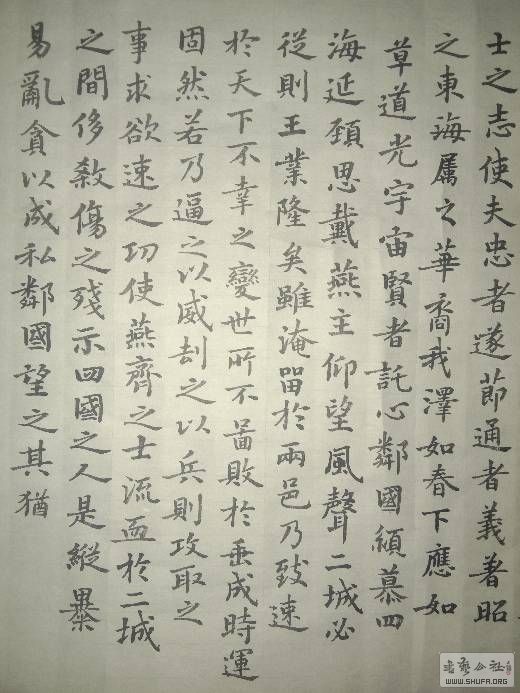 士之志使夫忠者遂節通者義著昭
之東海屬之華裔我澤如春下應如
草道光宇宙賢者託心鄰國傾慕四
海延頸思戴燕主仰望風聲二城必
從則王業隆矣雖淹留於兩邑乃致速
於天下不幸之變世所不啚敗於垂成時運
固然若乃逼之以威刧之以兵則攻取之
事求欲速之功使燕齊之士流血於二城
之間侈殺傷之殘示四國之人是縱暴
易亂貪以成私鄰國望之其猶
书艺公社
WWW.SHUFA.ORG